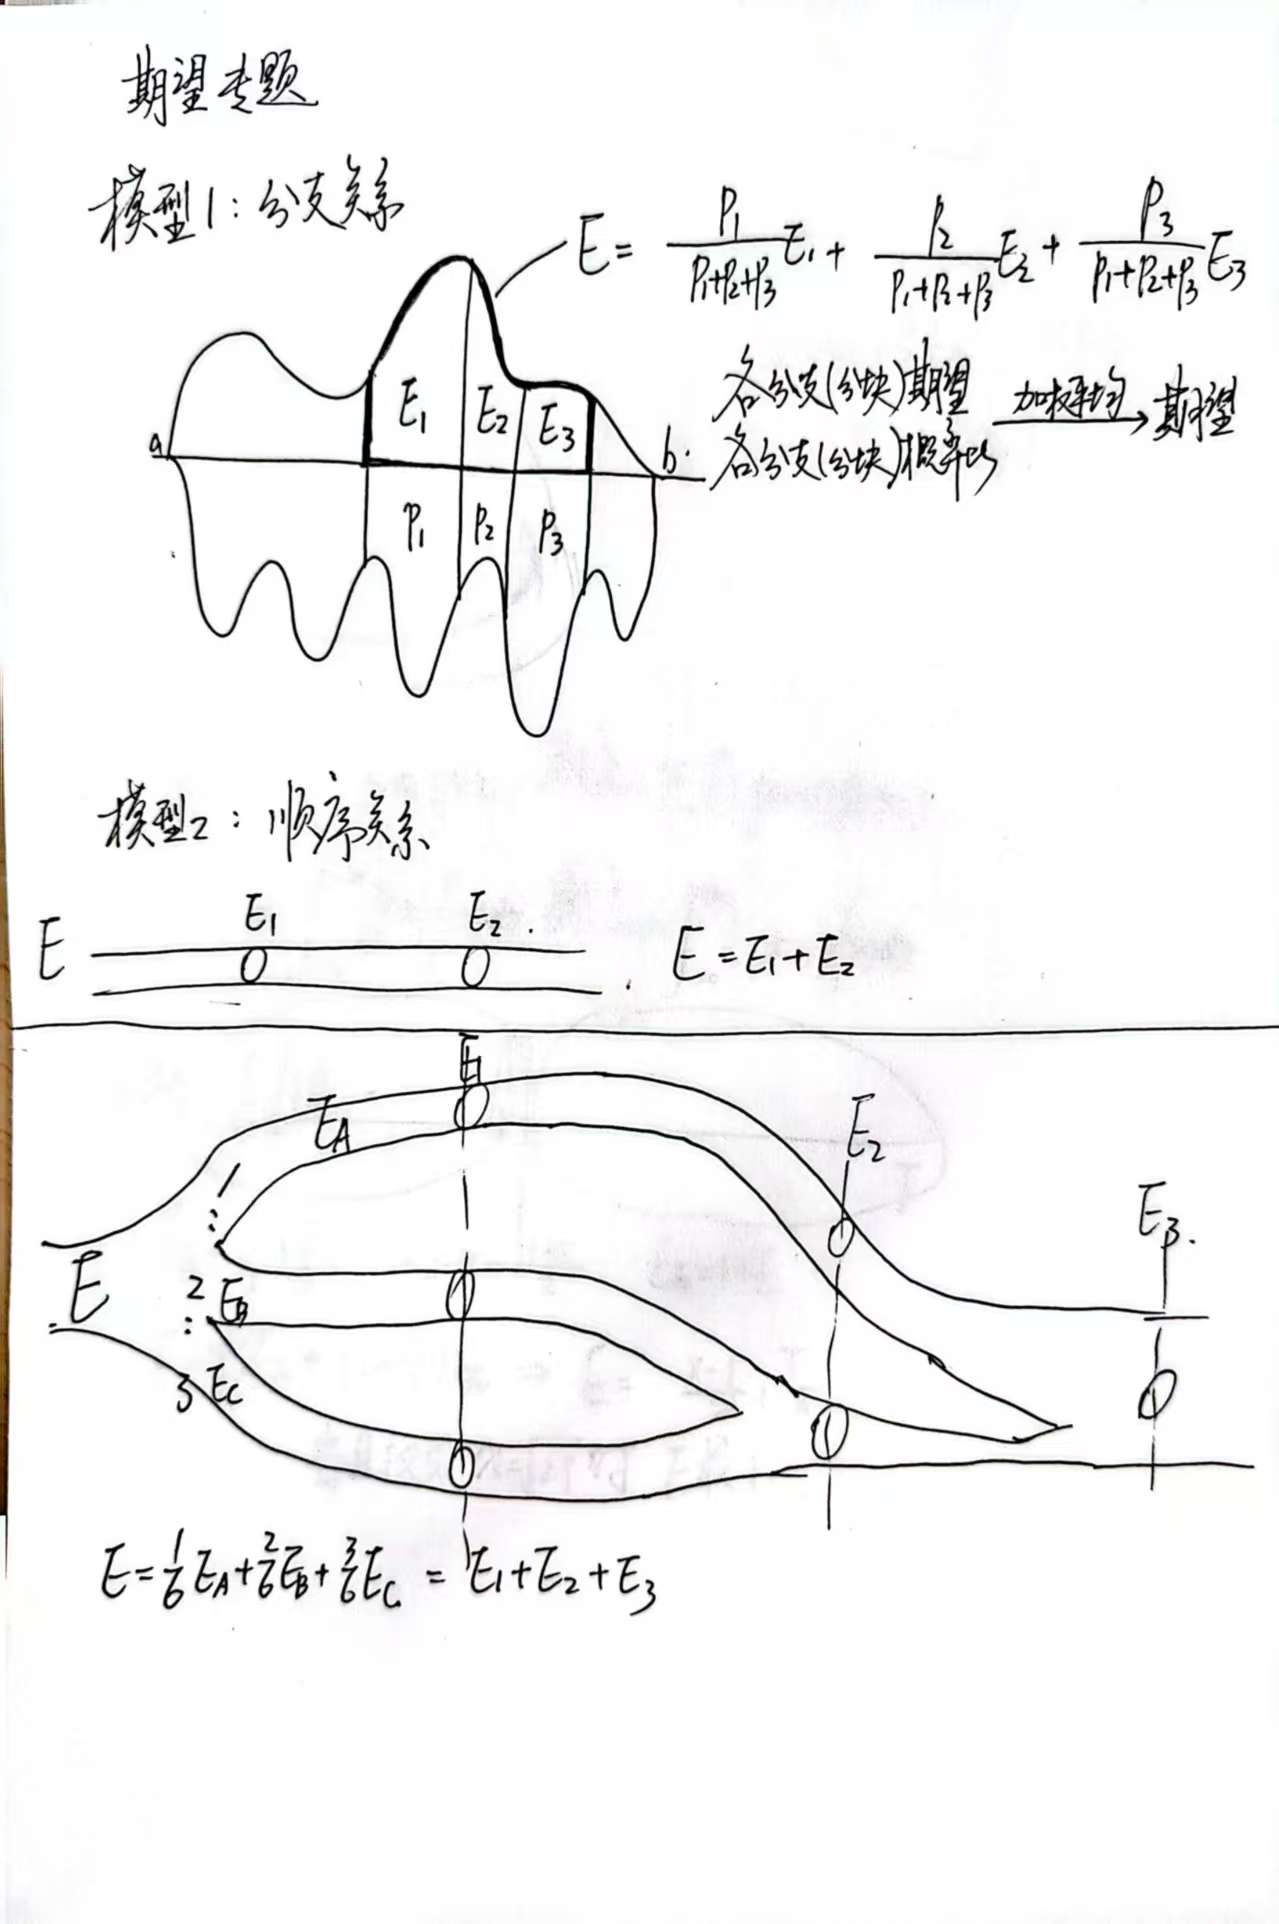 期望专题
模型1：分支关系
E = P₁/(P₁+P₂+P₃) E₁ + P₂/(P₁+P₂+P₃) E₂ + P₃/(P₁+P₂+P₃) E₃
E₁ E₂ E₃
a b
P₁ P₂ P₃
各分支(分块)期望
各分支(分块)概率比
加权平均 → 期望
模型2：顺序关系
E E₁ E₂
E = E₁+E₂
E₁
E_A
E₂
E₃
1
:
E
2 E_B
:
3 E_C
E = 1/6 E_A + 2/6 E_B + 3/6 E_C = E₁+E₂+E₃